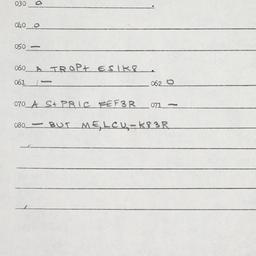 030 o .
040 o
050 —
060 A TROP+ ESIK8 .
061 1 — 062 O
070 A S+PRIC FEF3R 071 —
080 — BUT ME,LCU,-K83R